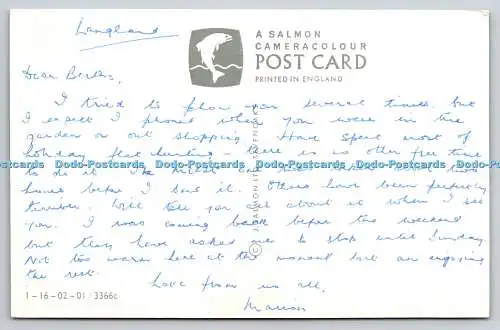 Langland
A SALMON
CAMERACOLOUR
POST CARD
PRINTED IN ENGLAND
Dear
I tried to phone you several times but
I expect I phoned when you were in the
garden or out shopping. Have spent most of
holiday flat hunting there is no other free time
to do it. The
hours before I it. Others have been perfectly
terrible. Will tell you all about it when I see
you. I was coming back before the weekend
but they have asked me to stop until Sunday.
Not too warm here at the moment but am enjoying
the rest.
Love from us all,
Marion
1-16-02-01 / 3366c
© J SALMON LTD SEVENOAKS
Dodo-Postcards Dodo-Postcards Dodo-Postcards Dodo-Postcards Dodo-Postcards Dodo-Postcards